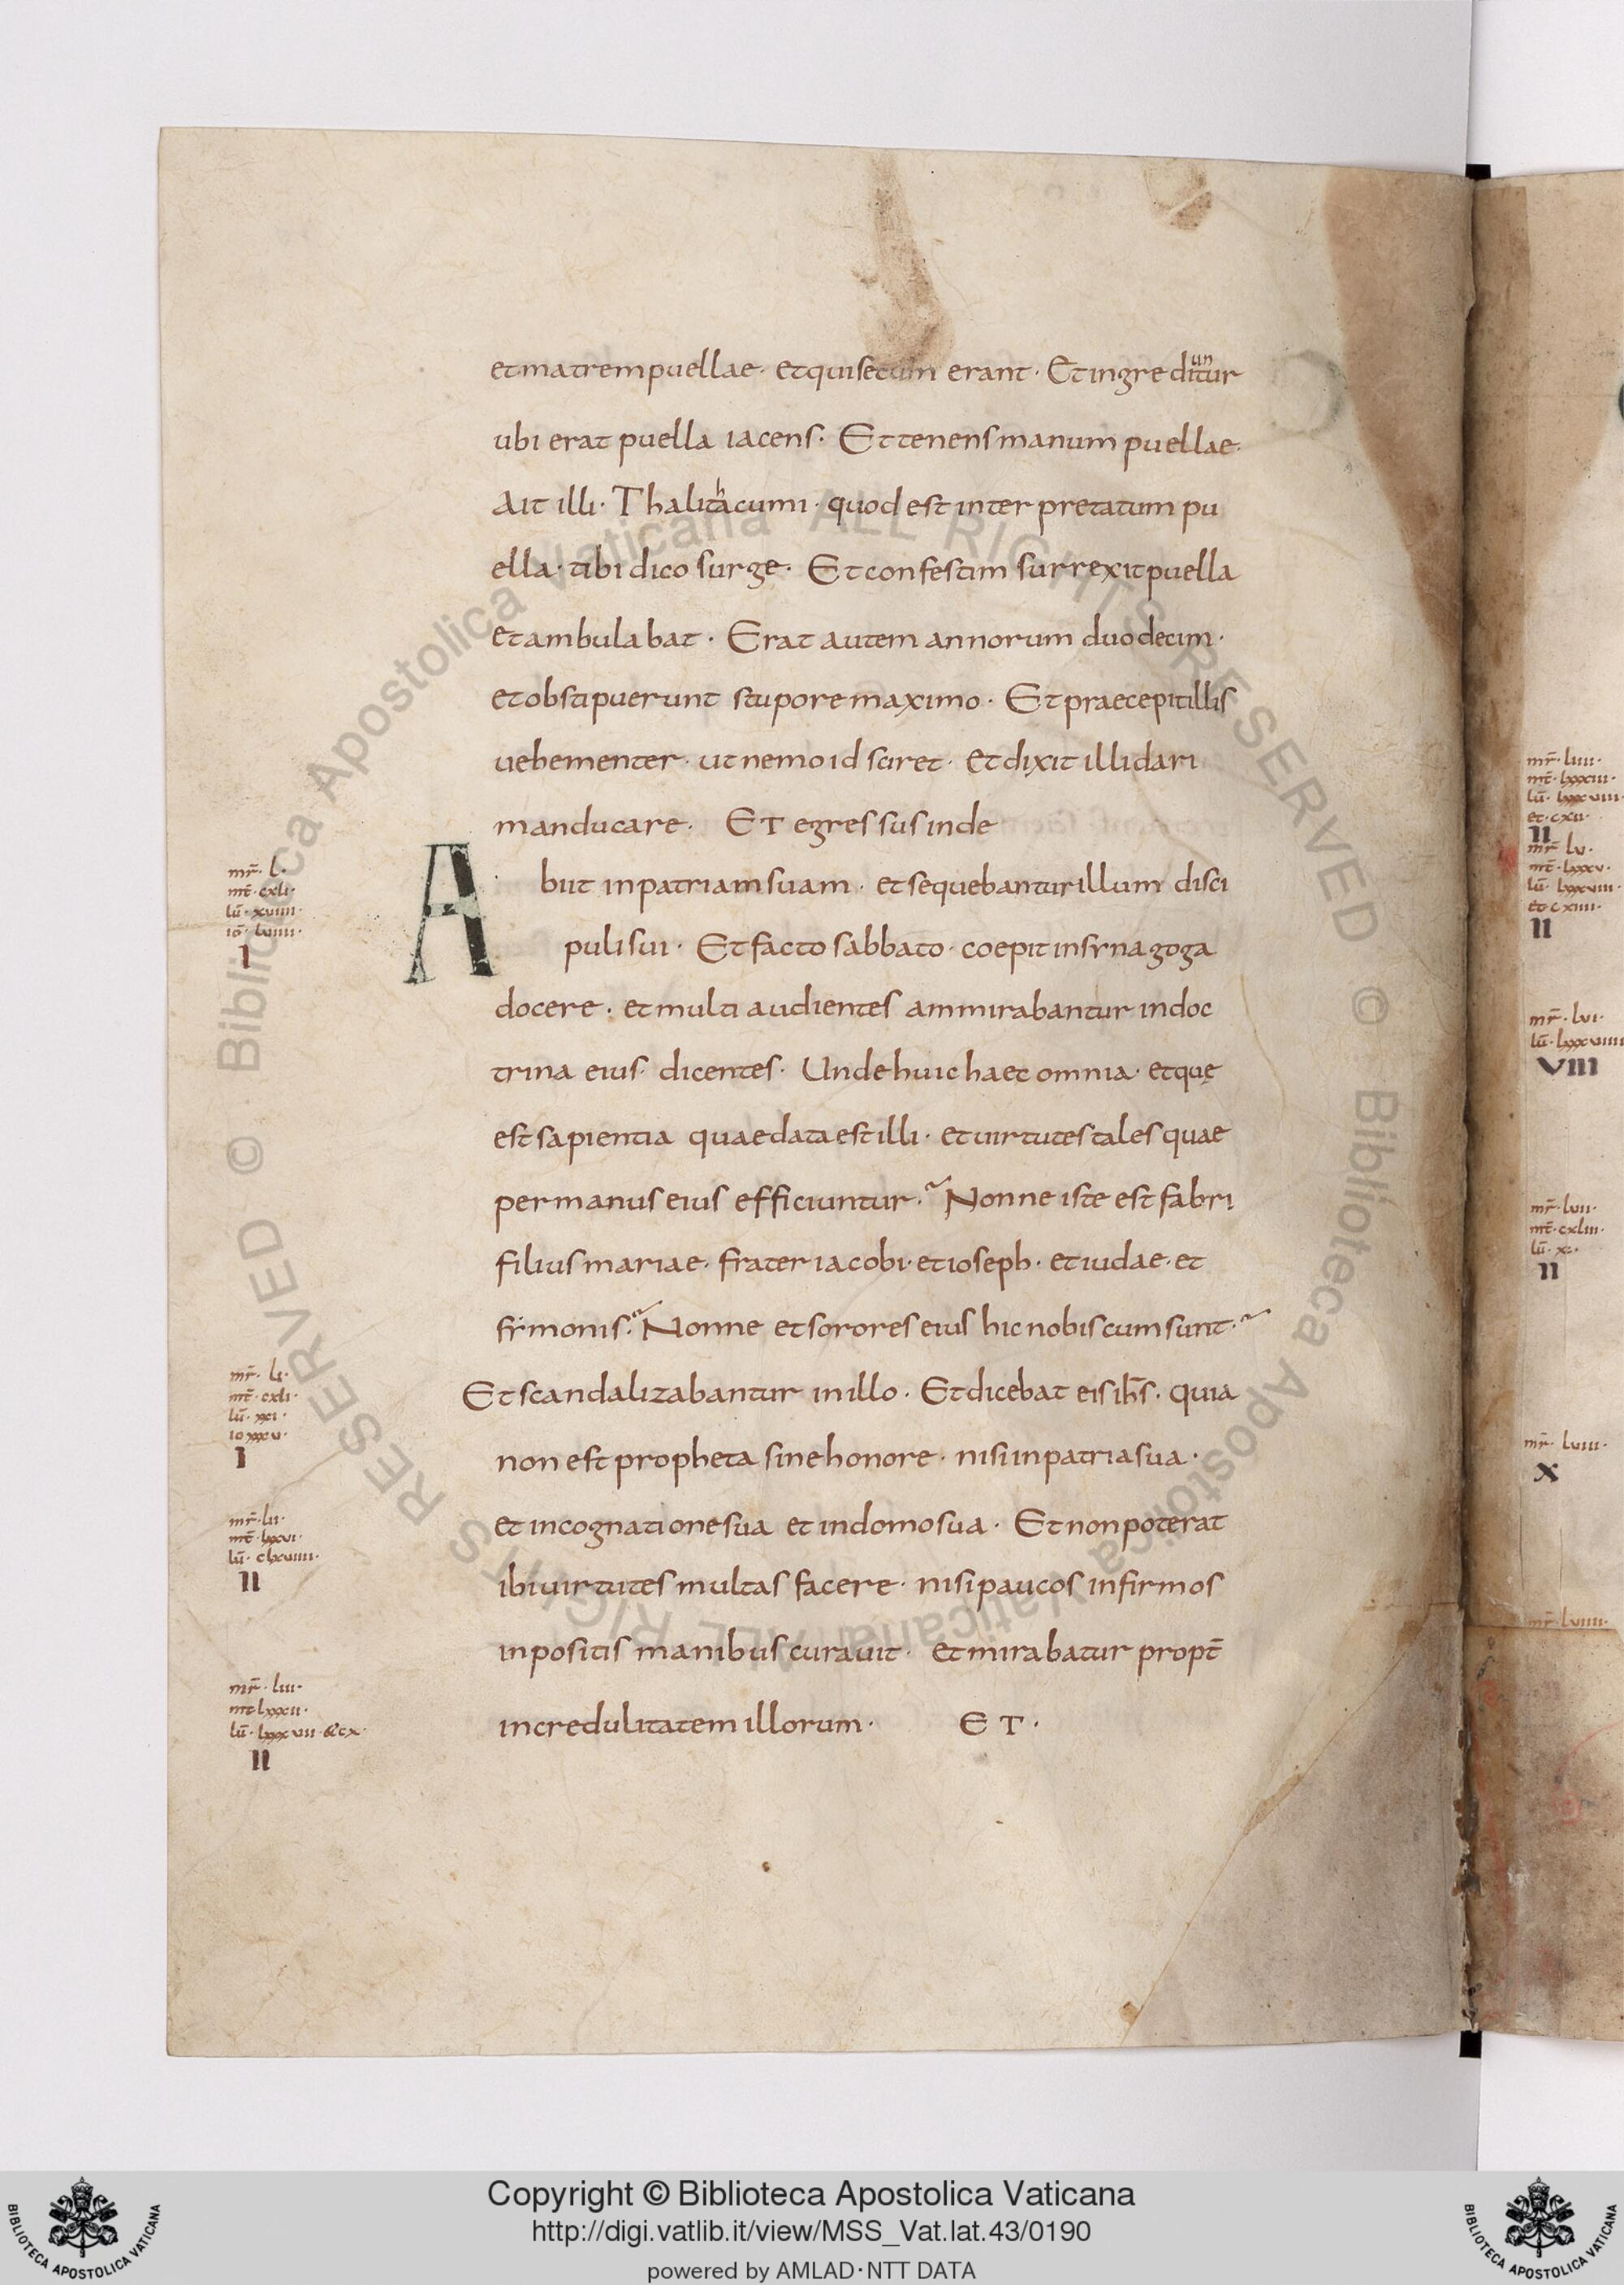 et matrem puellae · et qui secum erant · Et ingreditur
un
ubi erat puella iacens · Et tenens manum puellae ·
Ait illi · Thalitha cumi · quod est interpretatum pu
ella · tibi dico surge · Et confestim surrexit puella
et ambulabat · Erat autem annorum duodecim ·
et obstipuerunt stupore maximo · Et praecepit illis
uehementer · ut nemo id sciret · et dixit illi dari
manducare · ET egressus inde
Abiit in patriam suam · et sequebantur illum disci
puli sui · Et facto sabbato · coepit in synagoga
docere · et multi audientes ammirabantur in doc
trina eius dicentes · Unde huic haec omnia · et quę
est sapientia quae data est illi · et uirtutes tales quae
per manus eius efficiuntur · Nonne iste est fabri
filius mariae · frater iacobi · et ioseph · et iudae · et
symonis · Nonne et sorores eius hic nobiscum sunt ·
Et scandalizabantur in illo · Et dicebat eis ihs̄ · quia
non est propheta sine honore · nisi in patria sua ·
et in cognatione sua et in domo sua · Et non poterat
ibi uirtutes multas facere · nisi paucos infirmos
inpositis manibus curauit · et mirabatur propt̄
incredulitatem illorum · ET ·
mr̄ · l ·
mt̄ · cxli ·
lū · xuiiii ·
iō · luiiii ·
I
mr̄ · li ·
mt̄ · cxlii ·
lū · xxi ·
io xxxu ·
I
mr̄ · lii ·
mt̄ · lxxui ·
lū · clxuiiii ·
II
mr̄ · liii ·
mt lxxxii ·
lū · lxxxuii · & cx ·
II
mr̄ · liiii ·
mt̄ · lxxxiii ·
lū · lxxxuiii ·
et · cxii ·
II
mr̄ lu ·
mt̄ · lxxxu ·
lū · lxxxuiii ·
et · cxiiii ·
II
mr̄ · lui ·
lū · lxxxuiiii
VIII
mr̄ · luii ·
mt̄ · cxliii ·
lū · xc ·
II
mr̄ · luiii ·
X
mr̄ · luiiii ·
© Biblioteca Apostolica Vaticana ALL RIGHTS RESERVED © Biblioteca Apostolica Vaticana ALL RIGHTS RESERVED
BIBLIOTECA APOSTOLICA VATICANA
Copyright © Biblioteca Apostolica Vaticana
http://digi.vatlib.it/view/MSS_Vat.lat.43/0190
powered by AMLAD·NTT DATA
BIBLIOTECA APOSTOLICA VATICANA